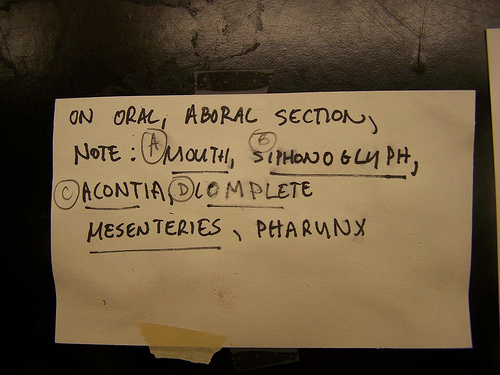 ON ORAL, ABORAL SECTION,
NOTE: Ⓐ MOUTH, Ⓑ SIPHONOGLYPH,
Ⓒ ACONTIA, Ⓓ COMPLETE
MESENTERIES, PHARYNX